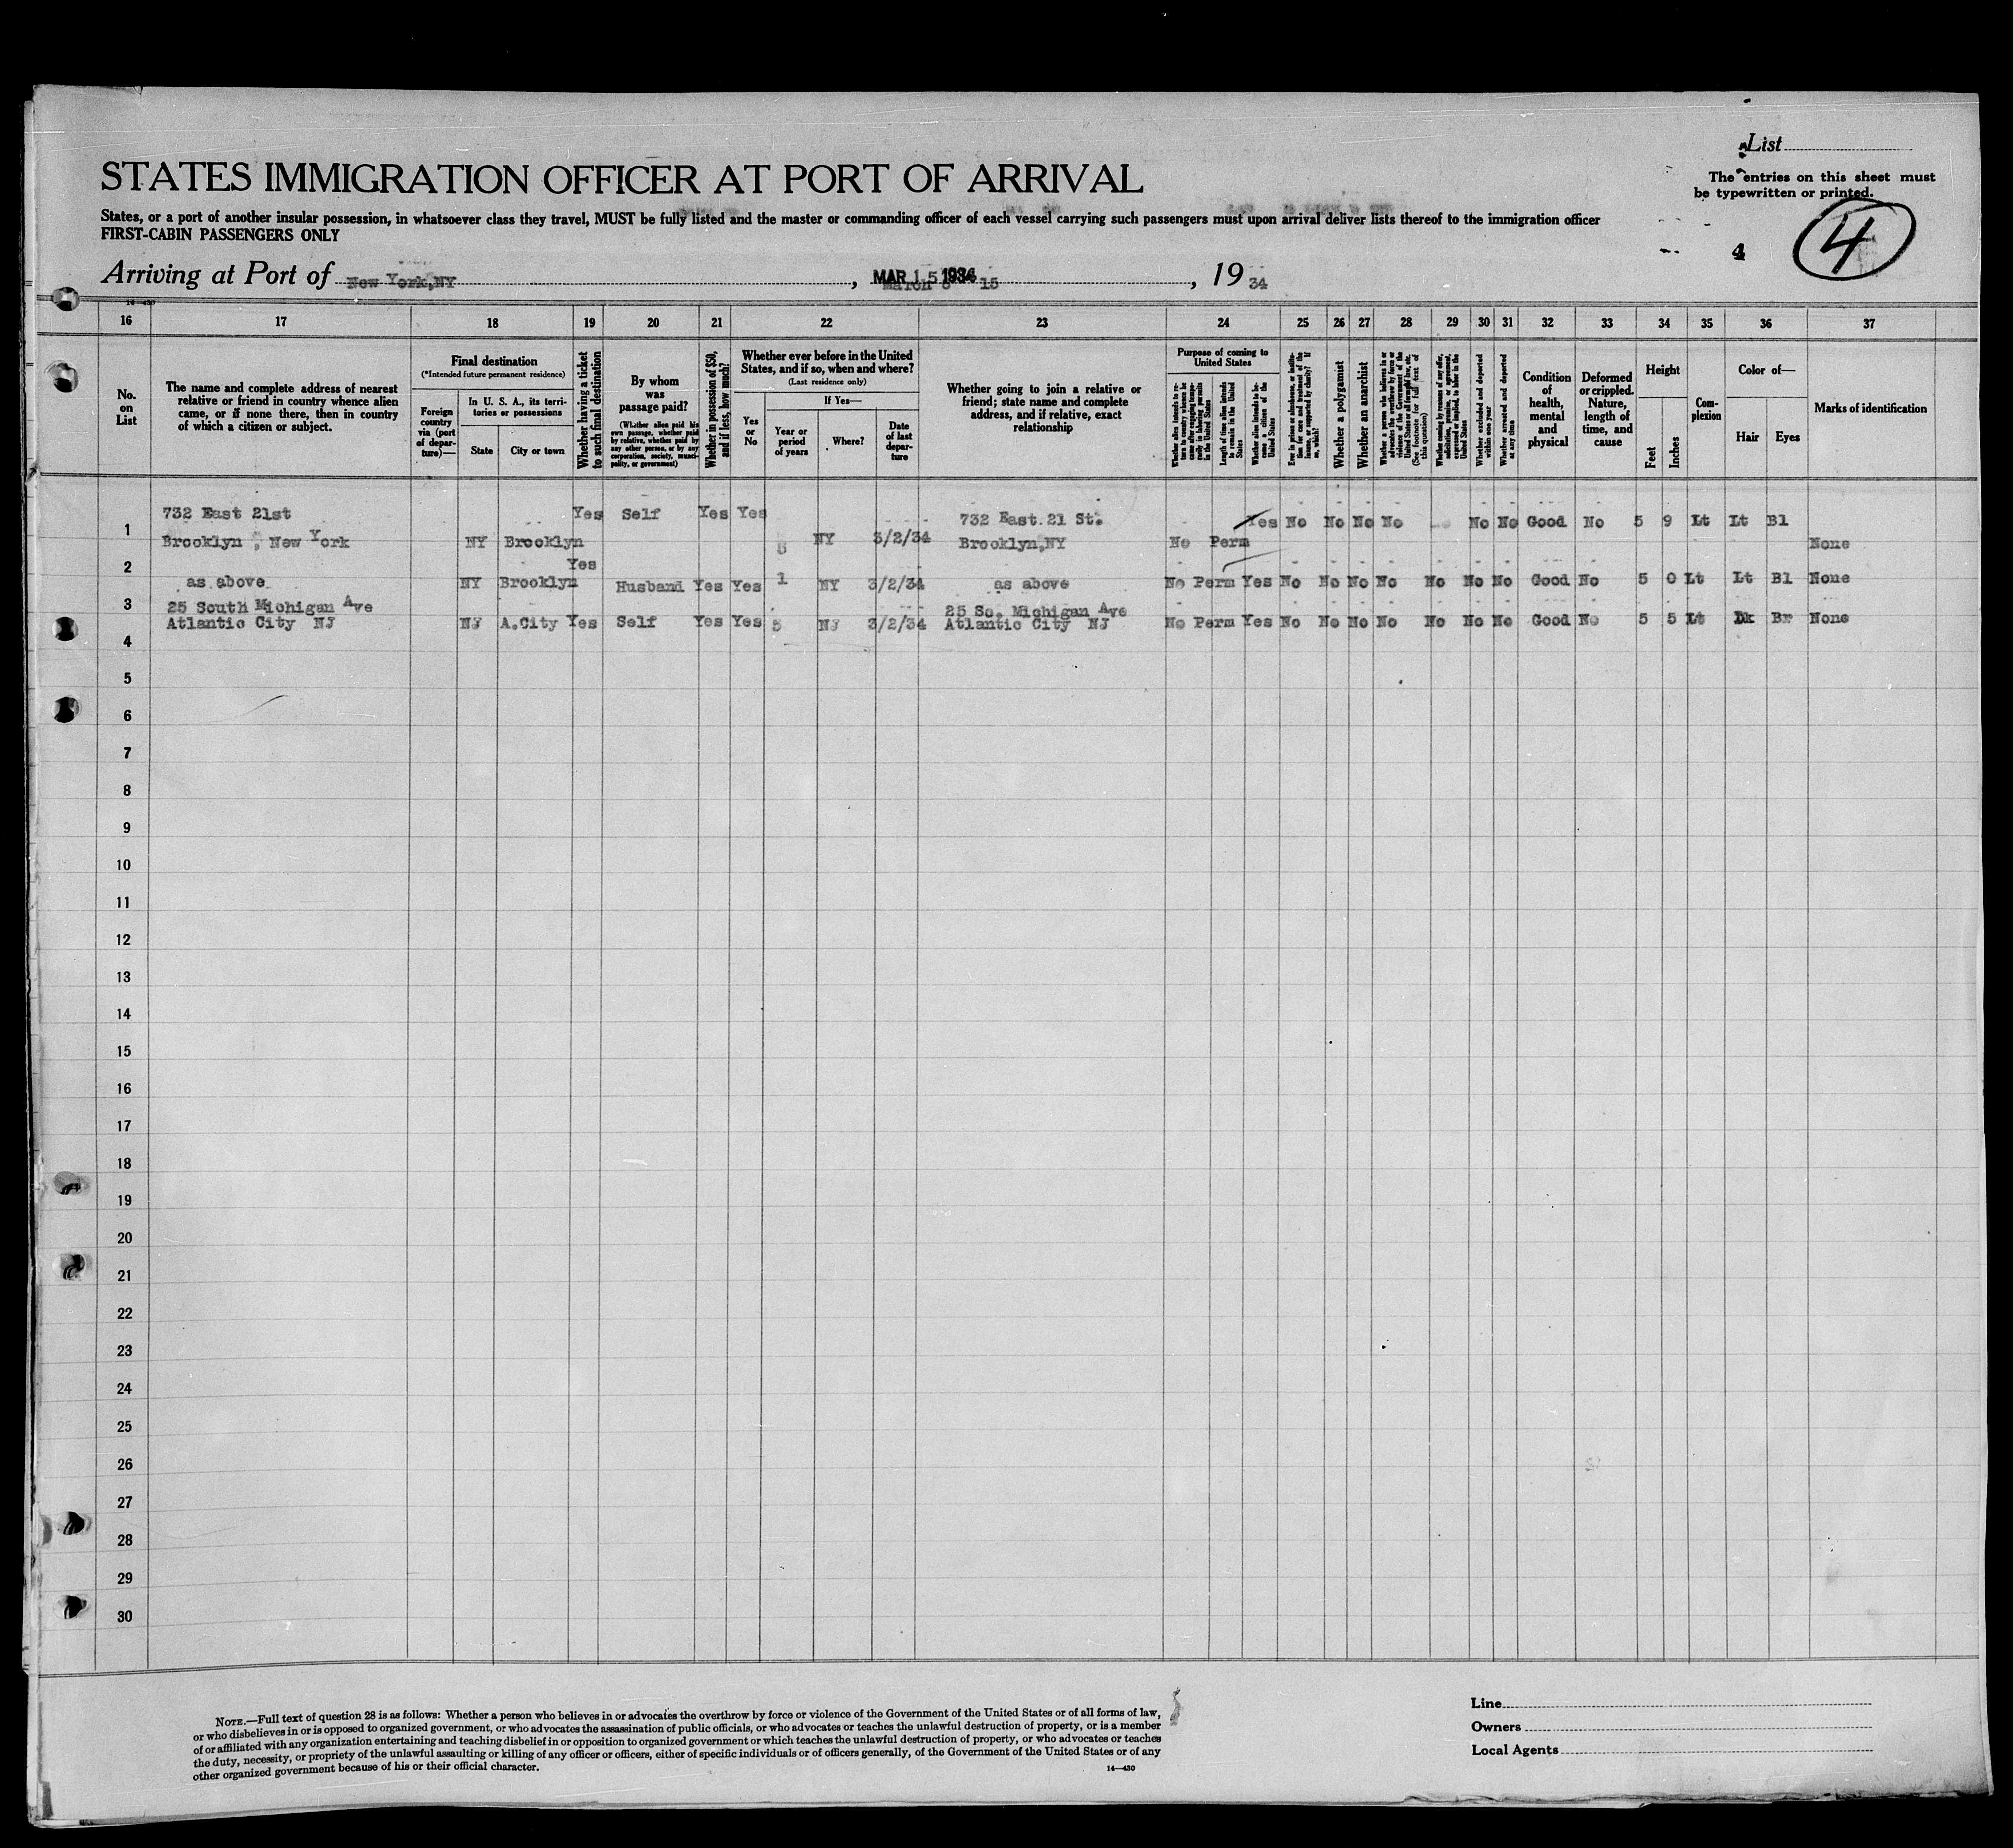 List
STATES IMMIGRATION OFFICER AT PORT OF ARRIVAL
The entries on this sheet must
be typewritten or printed.
States, or a port of another insular possession, in whatsoever class they travel, MUST be fully listed and the master or commanding officer of each vessel carrying such passengers must upon arrival deliver lists thereof to the immigration officer
FIRST-CABIN PASSENGERS ONLY
4 4
Arriving at Port of New York,NY , MAR 15 1934 March 15 , 19 34
14—430
16 17 18 19 20 21 22 23 24 25 26 27 28 29 30 31 32 33 34 35 36 37
No.
on
List
The name and complete address of nearest
relative or friend in country whence alien
came, or if none there, then in country
of which a citizen or subject.
Final destination
(*Intended future permanent residence)
Foreign
country
via (port
of depar-
ture)—
In U. S. A., its terri-
tories or possessions
State
City or town
Whether having a ticket
to such final destination
By whom
was
passage paid?
(Whether alien paid his
own passage, whether paid
by relative, whether paid by
any other person, or by any
corporation, society, munici-
pality, or government)
Whether in possession of $50,
and if less, how much?
Whether ever before in the United
States, and if so, when and where?
(Last residence only)
Yes
or
No
If Yes—
Year or
period
of years
Where?
Date
of last
depar-
ture
Whether going to join a relative or
friend; state name and complete
address, and if relative, exact
relationship
Purpose of coming to
United States
Whether alien intends to re-
turn to country whence he
came after engaging tempo-
rarily in laboring pursuits
in the United States
Length of time alien intends
to remain in the United
States
Whether alien intends to be-
come a citizen of the
United States
Ever in prison or almshouse, or institu-
tion for care and treatment of the
insane, or supported by charity? If
so, which?
Whether a polygamist
Whether an anarchist
Whether a person who believes in or
advocates the overthrow by force or
violence of the Government of the
United States or all forms of law, etc.
(See footnote for full text of
this question)
Whether coming by reason of any offer,
solicitation, promise, or agreement,
expressed or implied, to labor in the
United States
Whether excluded and deported
within one year
Whether arrested and deported
at any time
Condition
of
health,
mental
and
physical
Deformed
or crippled.
Nature,
length of
time, and
cause
Height
Feet
Inches
Com-
plexion
Color of—
Hair
Eyes
Marks of identification
732 East 21st Yes Self Yes Yes 732 East 21 St. Yes No No No No No No Good No 5 9 Lt Lt Bl
1 Brooklyn , New York NY Brooklyn 5 NY 3/2/34 Brooklyn,NY No Perm None
2 Yes
as above NY Brooklyn Husband Yes Yes 1 NY 3/2/34 as above No Perm Yes No No No No No No No Good No 5 0 Lt Lt Bl None
3 25 South Michigan Ave 25 So. Michigan Ave
Atlantic City NJ NJ A.City Yes Self Yes Yes 5 NJ 3/2/34 Atlantic City NJ No Perm Yes No No No No No No No Good No 5 5 Lt Dk Br None
4
5
6
7
8
9
10
11
12
13
14
15
16
17
18
19
20
21
22
23
24
25
26
27
28
29
30
NOTE.—Full text of question 28 is as follows: Whether a person who believes in or advocates the overthrow by force or violence of the Government of the United States or of all forms of law,
or who disbelieves in or is opposed to organized government, or who advocates the assassination of public officials, or who advocates or teaches the unlawful destruction of property, or is a member
of or affiliated with any organization entertaining and teaching disbelief in or opposition to organized government or which teaches the unlawful destruction of property, or who advocates or teaches
the duty, necessity, or propriety of the unlawful assaulting or killing of any officer or officers, either of specific individuals or of officers generally, of the Government of the United States or of any
other organized government because of his or their official character.
14—430
Line
Owners
Local Agents